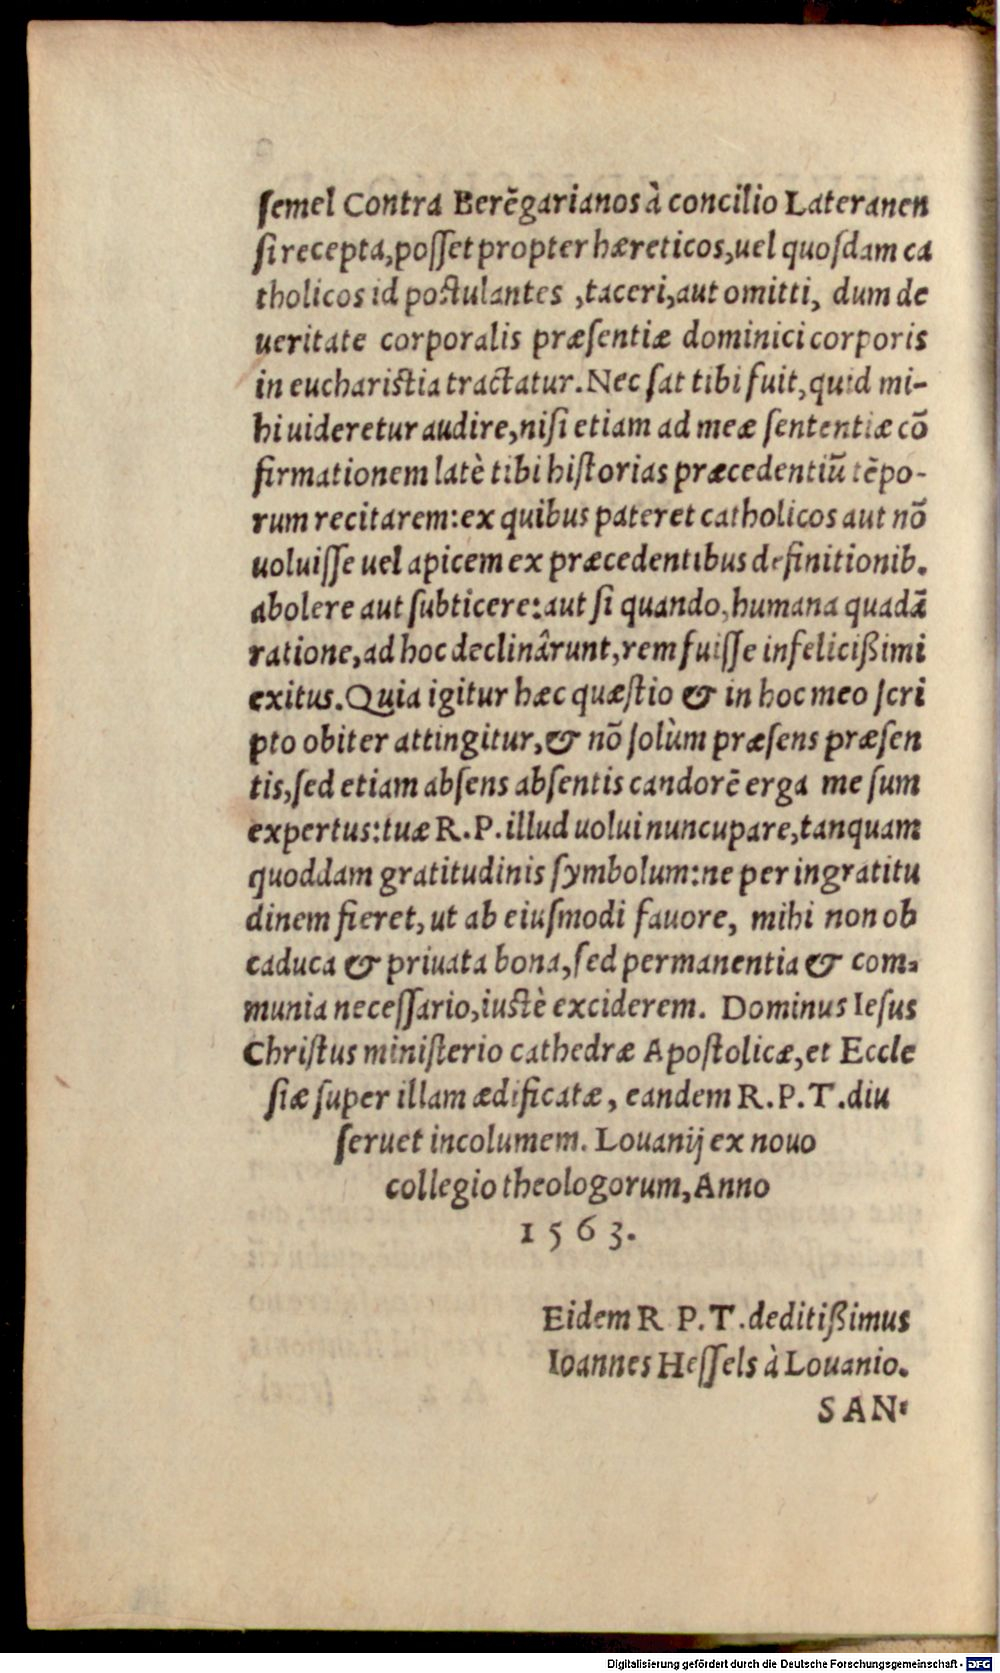 semel Contra Berēgarianos à concilio Lateranen
si recepta, posset propter hæreticos, uel quosdam ca
tholicos id postulantes, taceri, aut omitti, dum de
ueritate corporalis præsentiæ dominici corporis
in eucharistia tractatur. Nec sat tibi fuit, quid mi-
hi uideretur audire, nisi etiam ad meæ sententiæ cō
firmationem latè tibi historias præcedentiū tēpo-
rum recitarem: ex quibus pateret catholicos aut nō
uoluisse uel apicem ex præcedentibus definitionib.
abolere aut subticere: aut si quando, humana quadā
ratione, ad hoc declinârunt, rem fuisse infelicißimi
exitus. Quia igitur hæc quæstio & in hoc meo scri
pto obiter attingitur, & nō solùm præsens præsen
tis, sed etiam absens absentis candorē erga me sum
expertus: tuæ R. P. illud uolui nuncupare, tanquam
quoddam gratitudinis symbolum: ne per ingratitu
dinem fieret, ut ab eiusmodi fauore, mihi non ob
caduca & priuata bona, sed permanentia & com-
munia necessario, iustè exciderem. Dominus Iesus
Christus ministerio cathedræ Apostolicæ, et Eccle
siæ super illam ædificatæ, eandem R. P. T. diu
seruet incolumem. Louanij ex nouo
collegio theologorum, Anno
1563.
Eidem R P. T. deditißimus
Ioannes Hessels à Louanio.
SAN-
Digitalisierung gefördert durch die Deutsche Forschungsgemeinschaft - DFG